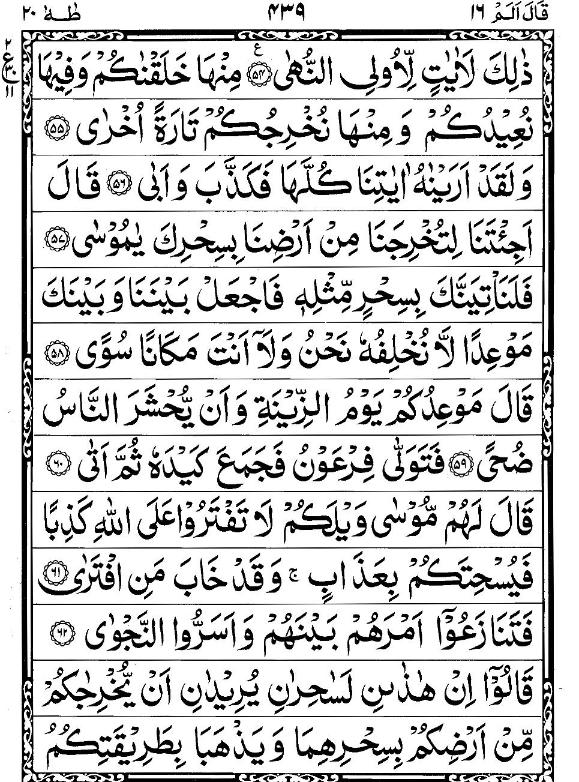 قَالَ اَلَمْ ١٦ ٤٣٩ طٰهٰ ٢٠
ذٰلِكَ لَاٰيٰتٍ لِّاُولِى النُّهٰى ﴿۵۴﴾ ع مِنْهَا خَلَقْنٰكُمْ وَفِيْهَا
نُعِيْدُكُمْ وَمِنْهَا نُخْرِجُكُمْ تَارَةً اُخْرٰى ﴿۵۵﴾
وَلَقَدْ اَرَيْنٰهُ اٰيٰتِنَا كُلَّهَا فَكَذَّبَ وَاَبٰى ﴿۵۶﴾ قَالَ
اَجِئْتَنَا لِتُخْرِجَنَا مِنْ اَرْضِنَا بِسِحْرِكَ يٰمُوْسٰى ﴿۵۷﴾
فَلَنَاْتِيَنَّكَ بِسِحْرٍ مِّثْلِهٖ فَاجْعَلْ بَيْنَنَا وَبَيْنَكَ
مَوْعِدًا لَّا نُخْلِفُهٗ نَحْنُ وَلَاۤ اَنْتَ مَكَانًا سُوًى ﴿۵۸﴾
قَالَ مَوْعِدُكُمْ يَوْمُ الزِّيْنَةِ وَاَنْ يُّحْشَرَ النَّاسُ
ضُحًى ﴿۵۹﴾ فَتَوَلّٰى فِرْعَوْنُ فَجَمَعَ كَيْدَهٗ ثُمَّ اَتٰى ﴿۶۰﴾
قَالَ لَهُمْ مُّوْسٰى وَيْلَكُمْ لَا تَفْتَرُوْا عَلَى اللّٰهِ كَذِبًا
فَيُسْحِتَكُمْ بِعَذَابٍ ۚ وَقَدْ خَابَ مَنِ افْتَرٰى ﴿۶۱﴾
فَتَنَازَعُوْۤا اَمْرَهُمْ بَيْنَهُمْ وَاَسَرُّوا النَّجْوٰى ﴿۶۲﴾
قَالُوْۤا اِنْ هٰذٰىنِ لَسٰحِرٰنِ يُرِيْدٰنِ اَنْ يُّخْرِجٰكُمْ
مِّنْ اَرْضِكُمْ بِسِحْرِهِمَا وَيَذْهَبَا بِطَرِيْقَتِكُمُ